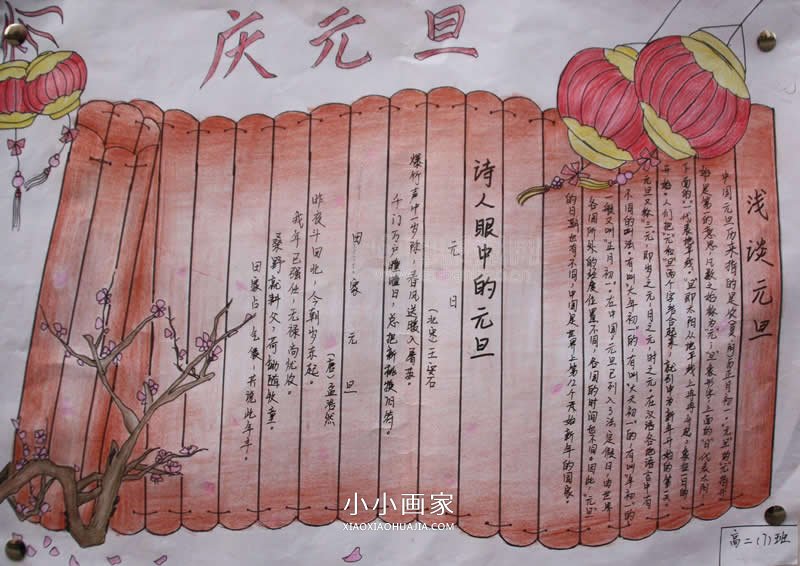 庆元旦
浅谈元旦
中国元旦历来指的是农(夏、阴)历正月初一。"元旦"的"元"指开
始是第一的意思,凡数之始称为元;"旦"象形字,上面的"日"代表太阳
下面的"一"代表地平线。"旦"即太阳从地平线上冉冉升起,象征一日的
开始。人们把"元"和"旦"两个字结合起来,就引申为新年开始的第一天。
元旦又称"三元",即岁之元、月之元、时之元。在汉语各地语言中有
不同的叫法,有叫"大年初一"的,有叫"大天初一"的,有叫"年初一"的
一般又叫"正月初一"。在中国,元旦已列入了法定假日,由世界
各国所处的经度位置不同,各国的时间也不同。因此,"元旦"
的日期也有不同,中国是世界上第12个开始新年的国家。
诗人眼中的元旦
元日
(北宋)王安石
爆竹声中一岁除,春风送暖入屠苏。
千门万户曈曈日,总把新桃换旧符。
田家元旦
(唐)孟浩然
昨夜斗回北,今朝岁东起。
我年已强仕,无禄尚忧农。
桑野就耕父,荷锄随牧童。
田家占气候,共说此年丰。
小小画家
XIAOXIAOHUAJIA.COM
高二(7)班